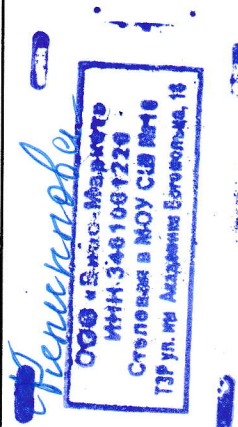 ООО «Виас-Маркет»
ИНН 3461001226
Столовая в МОУ СШ №16
ТЗР ул. им Академика Богомольца, 18